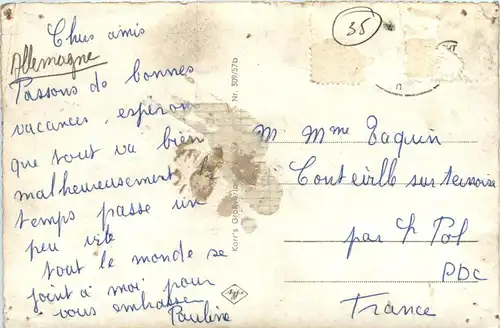 Chers amis
Allemagne
Passons de bonnes
vacances, espérons
que tout va bien
malheureusement
temps passe un
peu vite
tout le monde se
joint à moi pour
vous embrasser
Pauline
Nr. 309/57b
35
M. Mme Taquin
Conteville sur ternoise
par St Pol
PDC
France